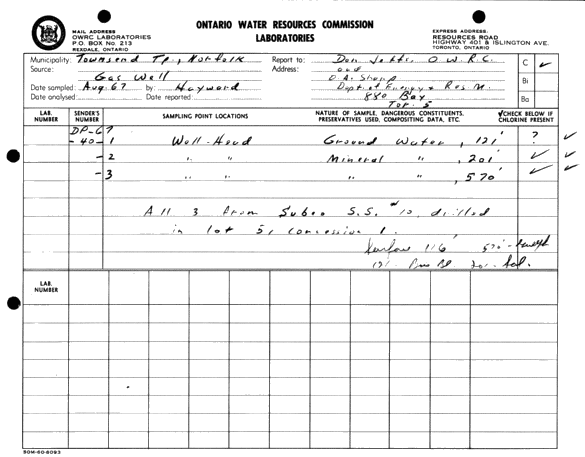 ONTARIO WATER RESOURCES COMMISSION
LABORATORIES
MAIL ADDRESS
OWRC LABORATORIES
P.O. BOX No. 213
REXDALE, ONTARIO
EXPRESS ADDRESS:
RESOURCES ROAD
HIGHWAY 401 & ISLINGTON AVE.
TORONTO, ONTARIO
Municipality: Townsend Tp., Norfolk
Source: Gas Well
Date sampled: Aug. 67 by: Hayward
Date analysed: Date reported:
Report to: Don Jeffs, O.W.R.C.
Address: and
D.A. Sharp
Dept of Energy & Res. M.
880 Bay
Tor. 5
C ✓
Bi
Ba
LAB. NUMBER SENDER'S NUMBER SAMPLING POINT LOCATIONS NATURE OF SAMPLE, DANGEROUS CONSTITUENTS, PRESERVATIVES USED, COMPOSITING DATA, ETC. ✓CHECK BELOW IF CHLORINE PRESENT
DP-67
-40-1 Well-Head Ground Water, 121' ? ✓
-2 " " Mineral " , 201' ✓ ✓
-3 " " " , 570' ✓ ✓
All 3 from Subco S.S. #10, drilled
in lot 5, concession 1.
Surface 116 570'-
121' 201'
LAB. NUMBER
50M-60-6093